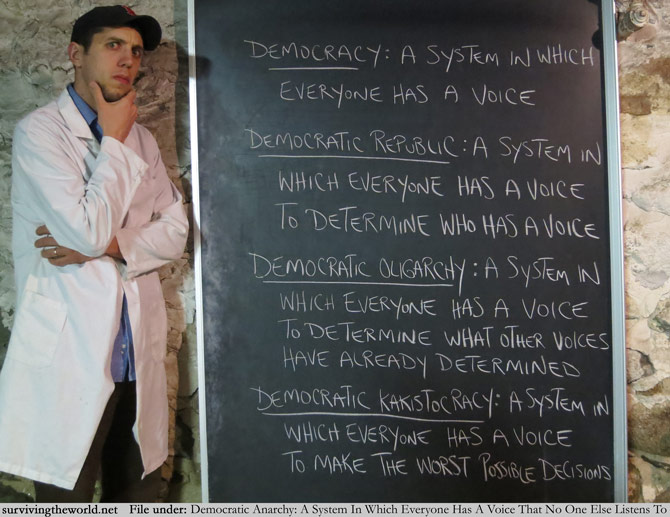 DEMOCRACY: A SYSTEM IN WHICH
EVERYONE HAS A VOICE
DEMOCRATIC REPUBLIC: A SYSTEM IN
WHICH EVERYONE HAS A VOICE
TO DETERMINE WHO HAS A VOICE
DEMOCRATIC OLIGARCHY: A SYSTEM IN
WHICH EVERYONE HAS A VOICE
TO DETERMINE WHAT OTHER VOICES
HAVE ALREADY DETERMINED
DEMOCRATIC KAKISTOCRACY: A SYSTEM IN
WHICH EVERYONE HAS A VOICE
TO MAKE THE WORST POSSIBLE DECISIONS
survivingtheworld.net File under: Democratic Anarchy: A System In Which Everyone Has A Voice That No One Else Listens To